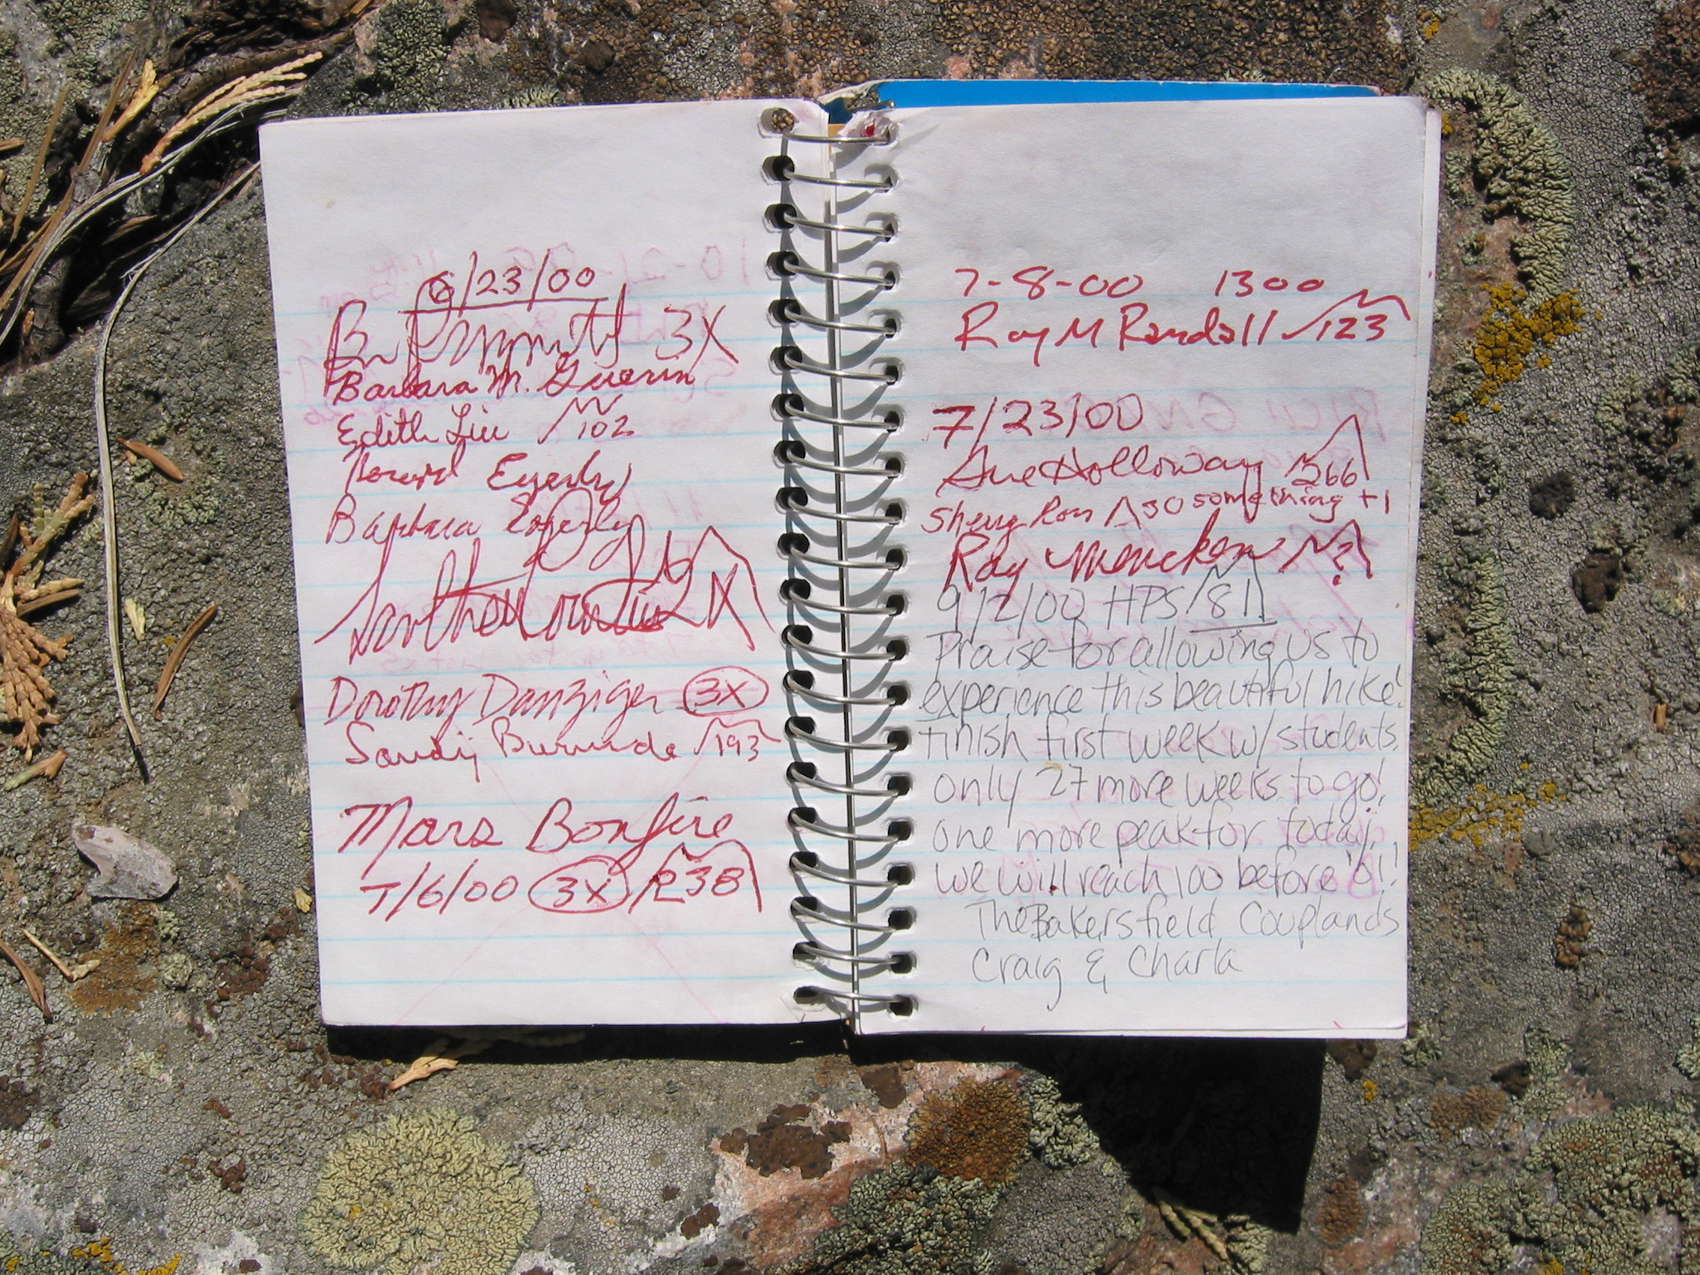 6/23/00
3X
Barbara M. Guerin
Edith Liu 102
Howard Eyerly
Barbara Eyerly
2X
Dorothy Danziger 3X
Sandy Burnside 193
Mars Bonfire
7/6/00 3X 238
7-8-00 1300
Ray M Randall 123
7/23/00
Sue Holloway 266
Sherry Ross 30 something +1
Ray Mencken ?
9/2/00 HPS 81
Praise for allowing us to
experience this beautiful hike!
finish first week w/ students.
only 27 more weeks to go!
one more peak for today!
we will reach 100 before '01!
The Bakersfield Couplands
Craig & Charla